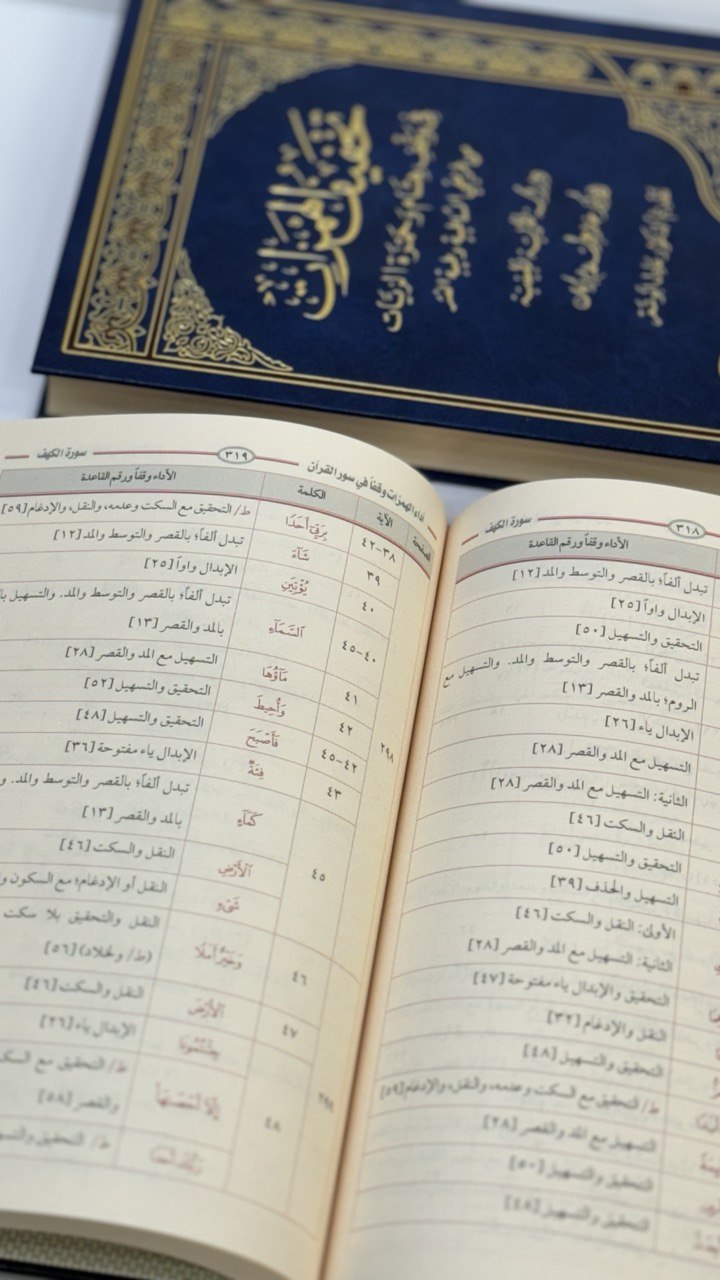 تخفيف الهمزات
سورة الكهف
٣١٨
الأداء وقفاً ورقم القاعدة
تبدل ألفاً؛ بالقصر والتوسط والمد [١٢]
الإبدال واواً [٢٥]
التحقيق والتسهيل [٥٠]
تبدل ألفاً؛ بالقصر والتوسط والمد. والتسهيل مع
الروم؛ بالمد والقصر [١٣]
الإبدال ياء [٢٦]
التسهيل مع المد والقصر [٢٨]
الثانية: التسهيل مع المد والقصر [٢٨]
النقل والسكت [٤٦]
التحقيق والتسهيل [٥٠]
التسهيل والحذف [٣٩]
الأولى: النقل والسكت [٤٦]
الثانية: التسهيل مع المد والقصر [٢٨]
التحقيق والإبدال ياء مفتوحة [٤٧]
النقل والإدغام [٣٢]
التحقيق والتسهيل [٤٨]
ط/ التحقيق مع السكت وعدمه، والنقل، والإدغام [٥٩]
التسهيل مع المد والقصر [٢٨]
التحقيق والتسهيل [٥٠]
التحقيق والتسهيل [٤٨]
أداء الهمزات وقفاً في سور القرآن
٣١٩
سورة الكهف
الصفحة الآية الكلمة الأداء وقفاً ورقم القاعدة
٣٨-٤٢ بِرَبِّيٓ أَحَدٗا ط/ التحقيق مع السكت وعدمه، والنقل، والإدغام [٥٩]
٣٩ شَآءَ تبدل ألفاً؛ بالقصر والتوسط والمد [١٢]
٤٠ يُؤۡتِيَنِ الإبدال واواً [٢٥]
٤٠-٤٥ ٱلسَّمَآءِ تبدل ألفاً؛ بالقصر والتوسط والمد. والتسهيل
بالمد والقصر [١٣]
٤١ مَآؤُهَا التسهيل مع المد والقصر [٢٨]
٤٢ وَأُحِيطَ التحقيق والتسهيل [٥٢]
٢٩٨ ٤٢-٤٥ فَأَصۡبَحَ التحقيق والتسهيل [٤٨]
٤٣ فِئَةٞ الإبدال ياء مفتوحة [٣٦]
كَمَآءٍ تبدل ألفاً؛ بالقصر والتوسط والمد.
بالمد والقصر [١٣]
٤٥ ٱلۡأَرۡضِ النقل والسكت [٤٦]
شَيۡءٖ النقل أو الإدغام؛ مع السكون
٤٦ وَخَيۡرٌ أَمَلٗا النقل والتحقيق بلا سكت
(ط/ ولخلاد) [٥٦]
٤٧ ٱلۡأَرۡضَ النقل والسكت [٤٦]
جِئۡتُمُونَا الإبدال ياء [٢٦]
٤٨ ط/ التحقيق مع
والقصر [٥٨]
ط/ التحقيق